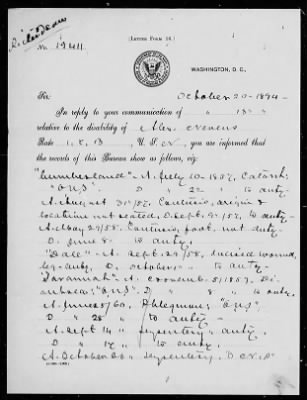 No. 19411
[LETTER FORM 16.]
WASHINGTON, D. C.,
Sir:
October 20 - 1894 -
In reply to your communication of " 18
relative to the disability of Alex.
Rate , U. S. N., you are informed that
the records of this Bureau show as follows, viz:
"Cumberland" A. July 10. 1857, Catarrh;
"O.N.S." D " 22 " to duty.
A. August 31/57, Contusio, origin &
location not stated, D. Sept. 9/57, to duty
A. May 29/58. Contusio, foot, not duty
D. June 8 - to duty.
"Dale" - A. Sept. 29/58, Incised wound,
leg - duty, D. October - to duty -
"Savannah" A. 5/1859.
"O.N.S." D. " 8 " to duty,
A. June 5/60, Phlegmon; "O.N.S."
D " 25 " to duty -
A. Sept. 14 " Dysentery - duty,
D. " 17 " to duty,
A. October " Dysentery,